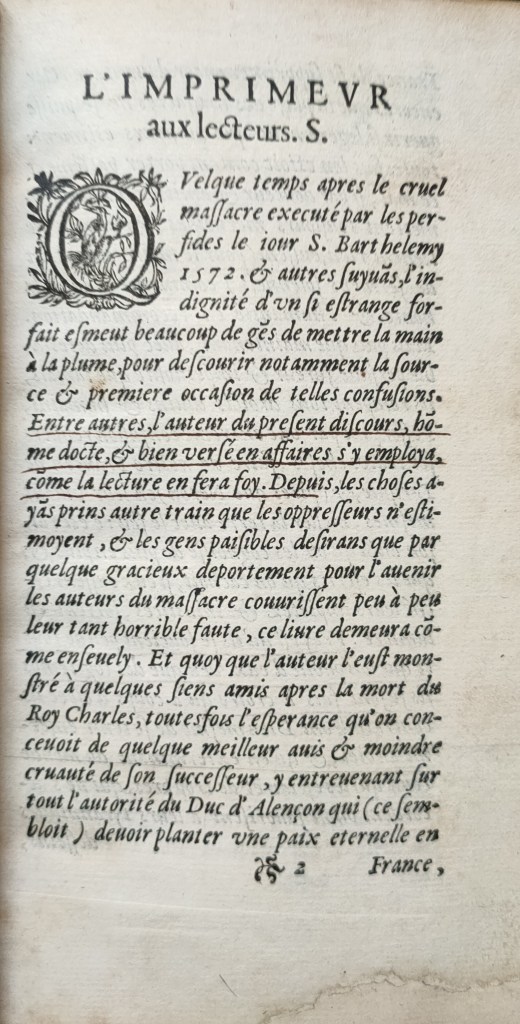 L'IMPRIMEVR
aux lecteurs. S.
QVelque temps apres le cruel
maſſacre executé par les per-
fides le iour S. Barthelemy
1572. & autres ſuyuãs, l'in-
dignité d'vn ſi eſtrange for-
fait eſmeut beaucoup de gẽs de mettre la main
à la plume, pour deſcourir notamment la ſour-
ce & premiere occaſion de telles confuſions.
Entre autres, l'auteur du preſent diſcours, hõ-
me docte, & bien verſé en affaires s'y employa,
cõme la lecture en fera foy. Depuis, les choſes a-
yãs prins autre train que les oppreſſeurs n'eſti-
moyent, & les gens paiſibles deſirans que par
quelque gracieux deportement pour l'auenir
les auteurs du maſſacre couuriſſent peu à peu
leur tant horrible faute, ce liure demeura cõ-
me enſeuely. Et quoy que l'auteur l'euſt mon-
ſtré à quelques ſiens amis apres la mort du
Roy Charles, toutesfois l'eſperance qu'on con-
ceuoit de quelque meilleur auis & moindre
cruauté de ſon ſucceſſeur, y entreuenant ſur
tout l'autorité du Duc d'Alençon qui (ce ſem-
bloit) deuoir planter vne paix eternelle en
❧ 2 France,